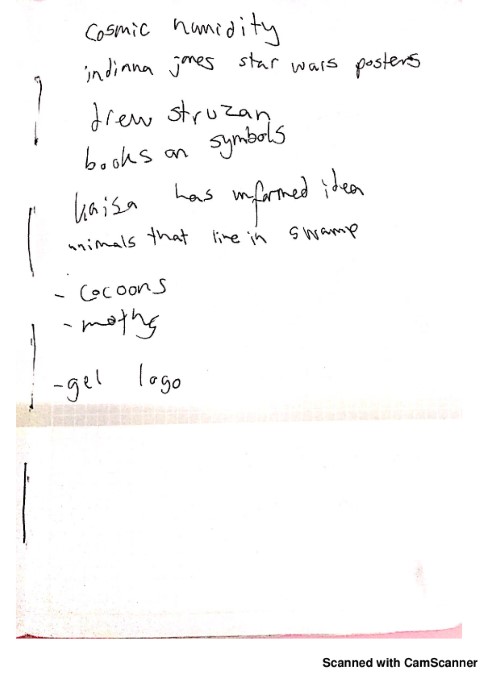 cosmic humidity
indinna jones star wars posters
drew struzan
books on symbols
kaisa has informed idea
animals that live in swamp
- cocoons
- moths
- gel logo
Scanned with CamScanner